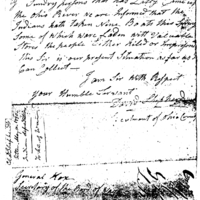 of Sundry persons that has Lately Come up
the Ohio River we are Informed that the
Indians hath Taken Nine Boats this Spring
Some of which were Laden with Valuable
Stores the people Either Kild or Imprisoned
this Sir is our present Situation as far as I
Can Collect
I am Sir With Respect
Your Humble Servant
David Shepherd
Lieutenant of Ohio County
General Knox
Secretary of the Board of War